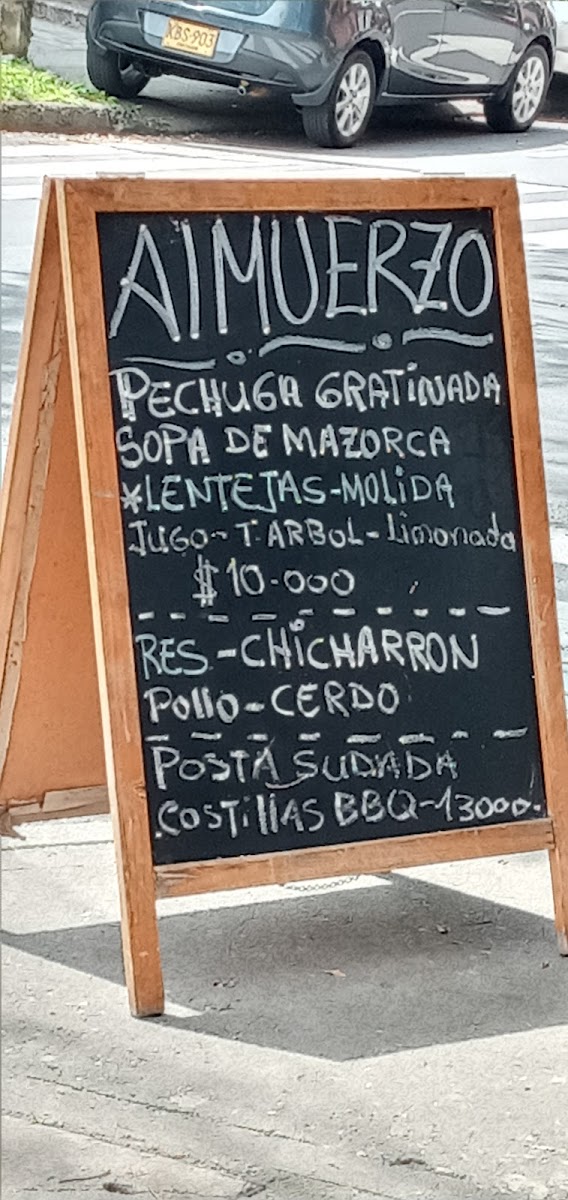 XBS-903
AlMUERZO
PECHUGA GRATiNADA
SOPA DE MAZORCA
*LENTEJAS-MOLiDA
JUGO-T.ARBOL-Limonada
$10.000
RES-CHiCHARRON
Pollo-CERDO
POSTA SUDADA
COSTillAS BBQ-13000.